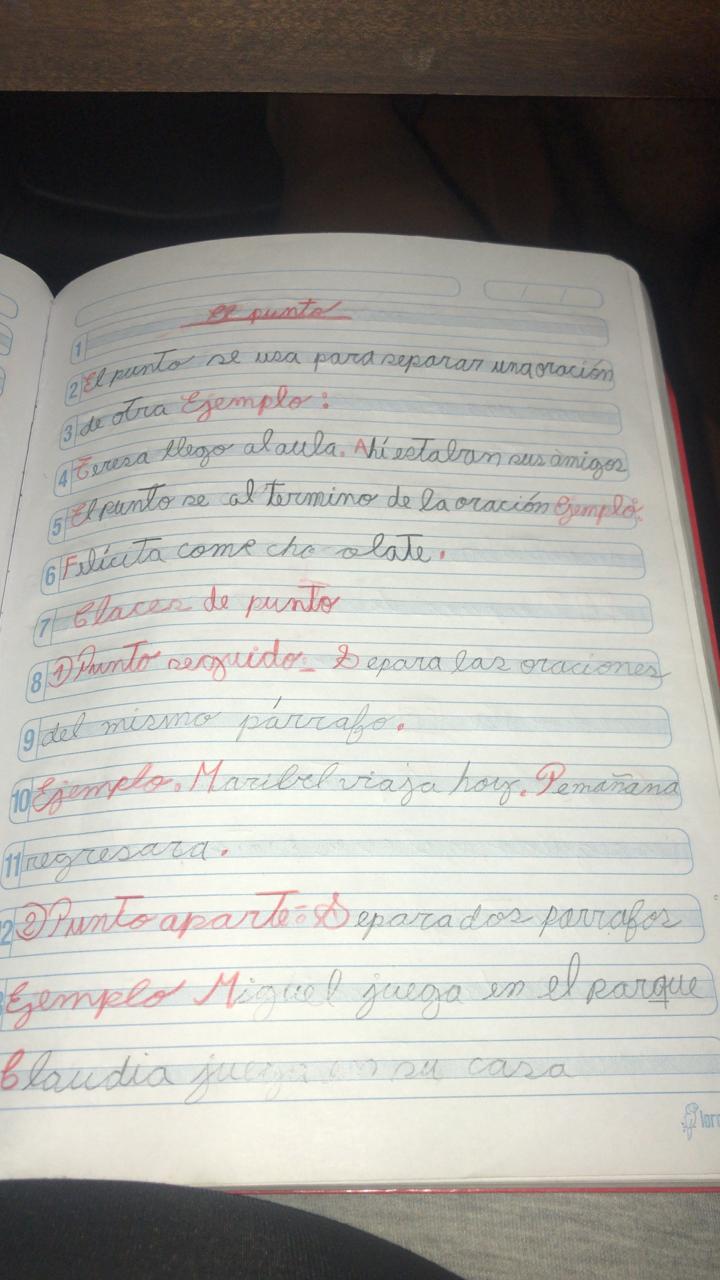 El punto
1
2 El punto se usa para separar una oración
3 de otra Ejemplo:
4 Teresa llego al aula. Ahí estaban sus amigos
5 El punto se al termino de la oración Ejemplo:
6 Felícita come cho olate.
7 Claces de punto
8 1) Punto seguido_ Separa las oraciones
9 del mismo párrafo.
10 Ejemplo. Maribel viaja hoy. Pemañana
11 regresara.
12 2) Punto aparte: Separa dos parrafos
Ejemplo Miguel juega en el parque
Claudia juega en su casa